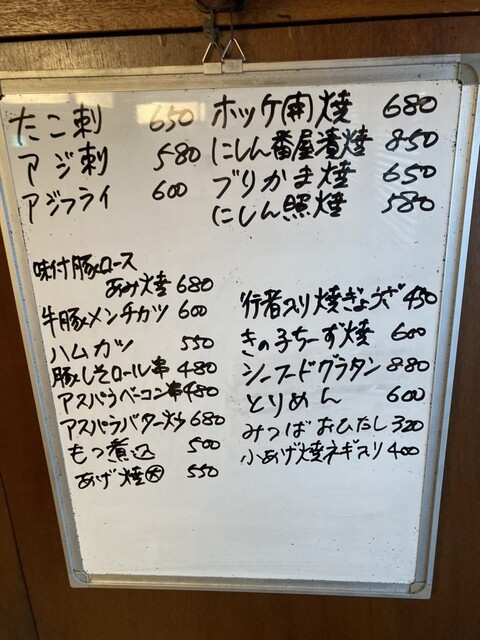 たこ刺 650
アジ刺 580
アジフライ 600
ホッケ開焼 680
にしん番屋漬焼 850
ブリかま焼 650
にしん照焼 580
味付豚ロース
あみ焼 680
牛豚メンチカツ 600
ハムカツ 550
豚しそロール串 480
アスパラベーコン串 480
アスパラバター炒 680
もつ煮込 500
あげ焼大 550
行者入り焼ぎょうざ 450
きの子ちーず焼 600
シーフードグラタン 880
とりめん 600
みつばおひたし 320
小あげ焼ネギ入り 400